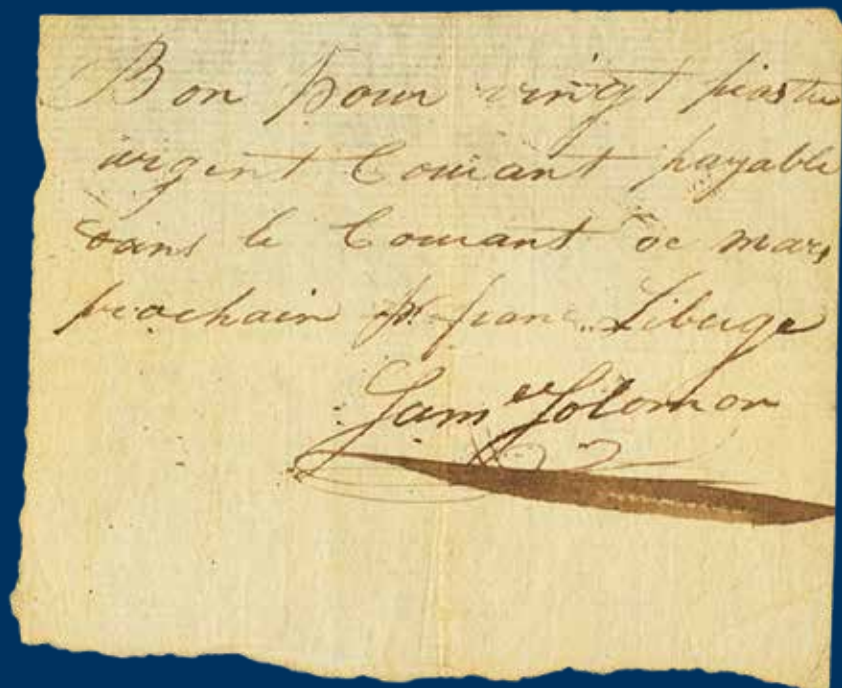 Bon pour vingt piastre
argent Courant payable
dans le Courant de mars
prochain pr. franc. Liberge
Saml Solomon